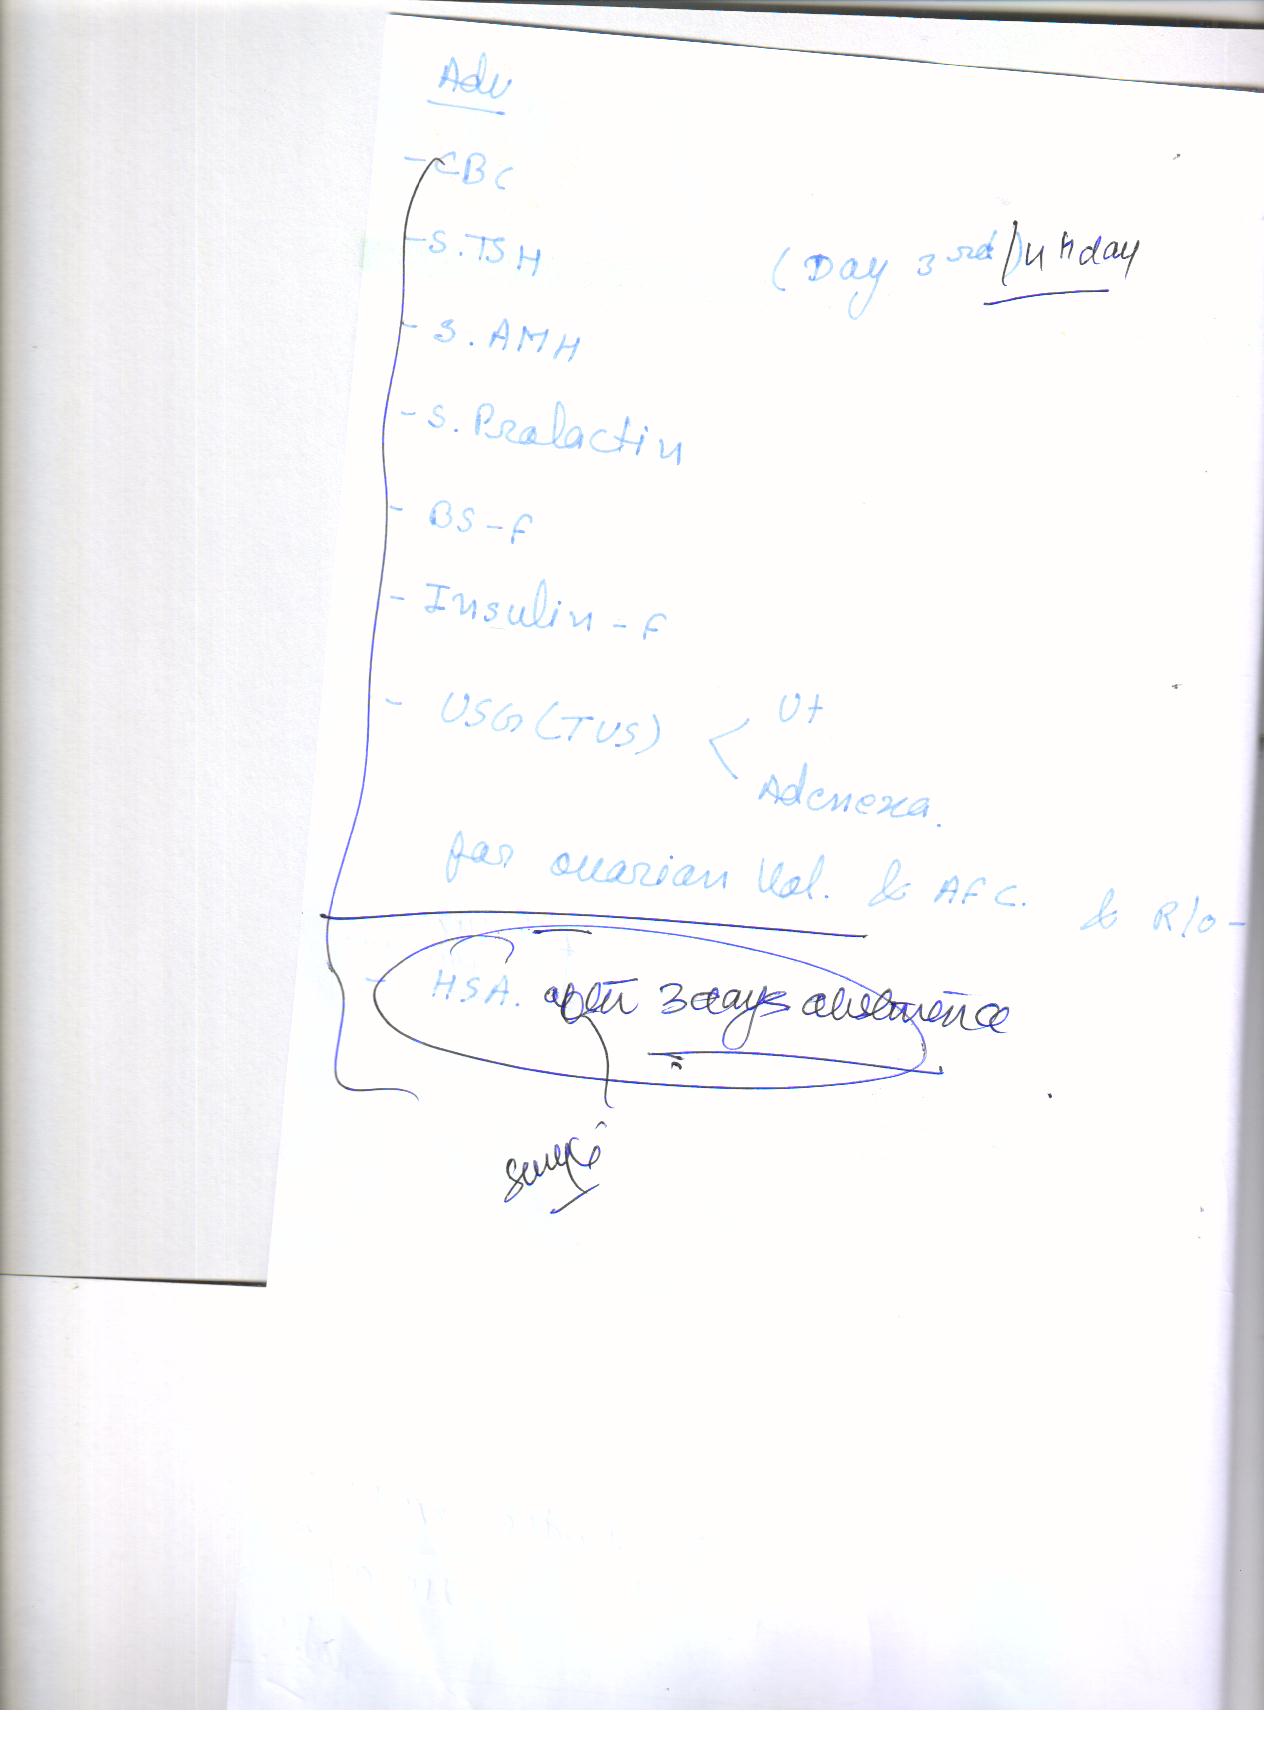 Adv
- CBC
- S. TSH (Day 3rd)/4th day
- S. AMH
- S. Prolactin
- BS - F
- Insulin - F
- USG (TVS) < Ut
Adenexa.
for ovarian Vol. & AFC. & R/o -
- HSA. after 3 days abstinence